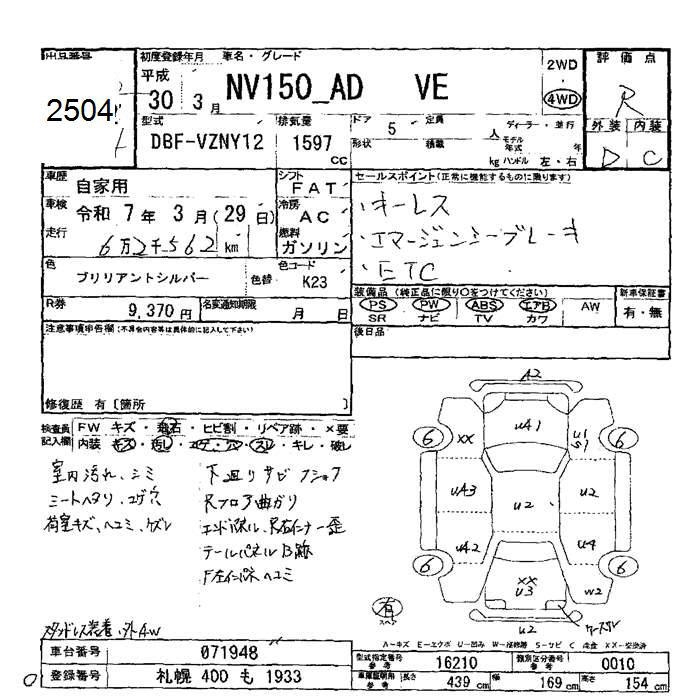 出品番号
2504
初度登録年月
平成
30 3月
車名・グレード
NV150_AD VE
2WD
・
4WD
評価点
R
外装 内装
D C
型式
DBF-VZNY12
排気量
1597
cc
ドア 5 定員
形状 積載
人
kg
ディーラー・並行
モデル年式 年
ハンドル 左・右
車歴
自家用
シフト
FAT
車検
令和 7年 3月(29日)
冷房
AC
走行
6万2千562 km
燃料
ガソリン
色
ブリリアントシルバー
色替
色コード
K23
R券
9,370円
名変通知期限
月 日
セールスポイント(正常に機能するものに限ります)
・キーレス
・エマージェンシーブレーキ
・ETC
装備品(純正品に限り○をつけてください)
PS PW ABS エアB AW
SR ナビ TV カワ
新車保証書
有・無
後日品
注意事項申告欄(不具合内容等は具体的に記入して下さい)
修復歴 有〔箇所 〕
検査員記入欄
FW キズ・飛石・ヒビ割・リペア跡・×要
内装 キズ・汚し・コゲ・穴・スレ・キレ・破レ
室内汚れ、シミ
シートヘタリ、コゲ穴
荷室キズ、ヘコミ、ケズレ
下廻りサビ
Rフロア曲がり
エンドパネル、R右インナー歪
テールパネルB跡
F左インパネヘコミ
スタッドレス装着・外AW
A2
UA1
6
XX
U1
S1
6
UA3
U2
U2
UA2
U4
6
XX
U3
6
W2
有
スペア
U2
A-キズ E-エクボ U-凹み W-補修跡 S-サビ C 腐食 XX-交換済
車台番号
071948
登録番号
札幌 400 も 1933
型式指定番号
参考
16210
類別区分番号
参考
0010
車庫証明用
参考
長さ 439 cm 幅 169 cm 高さ 154 cm